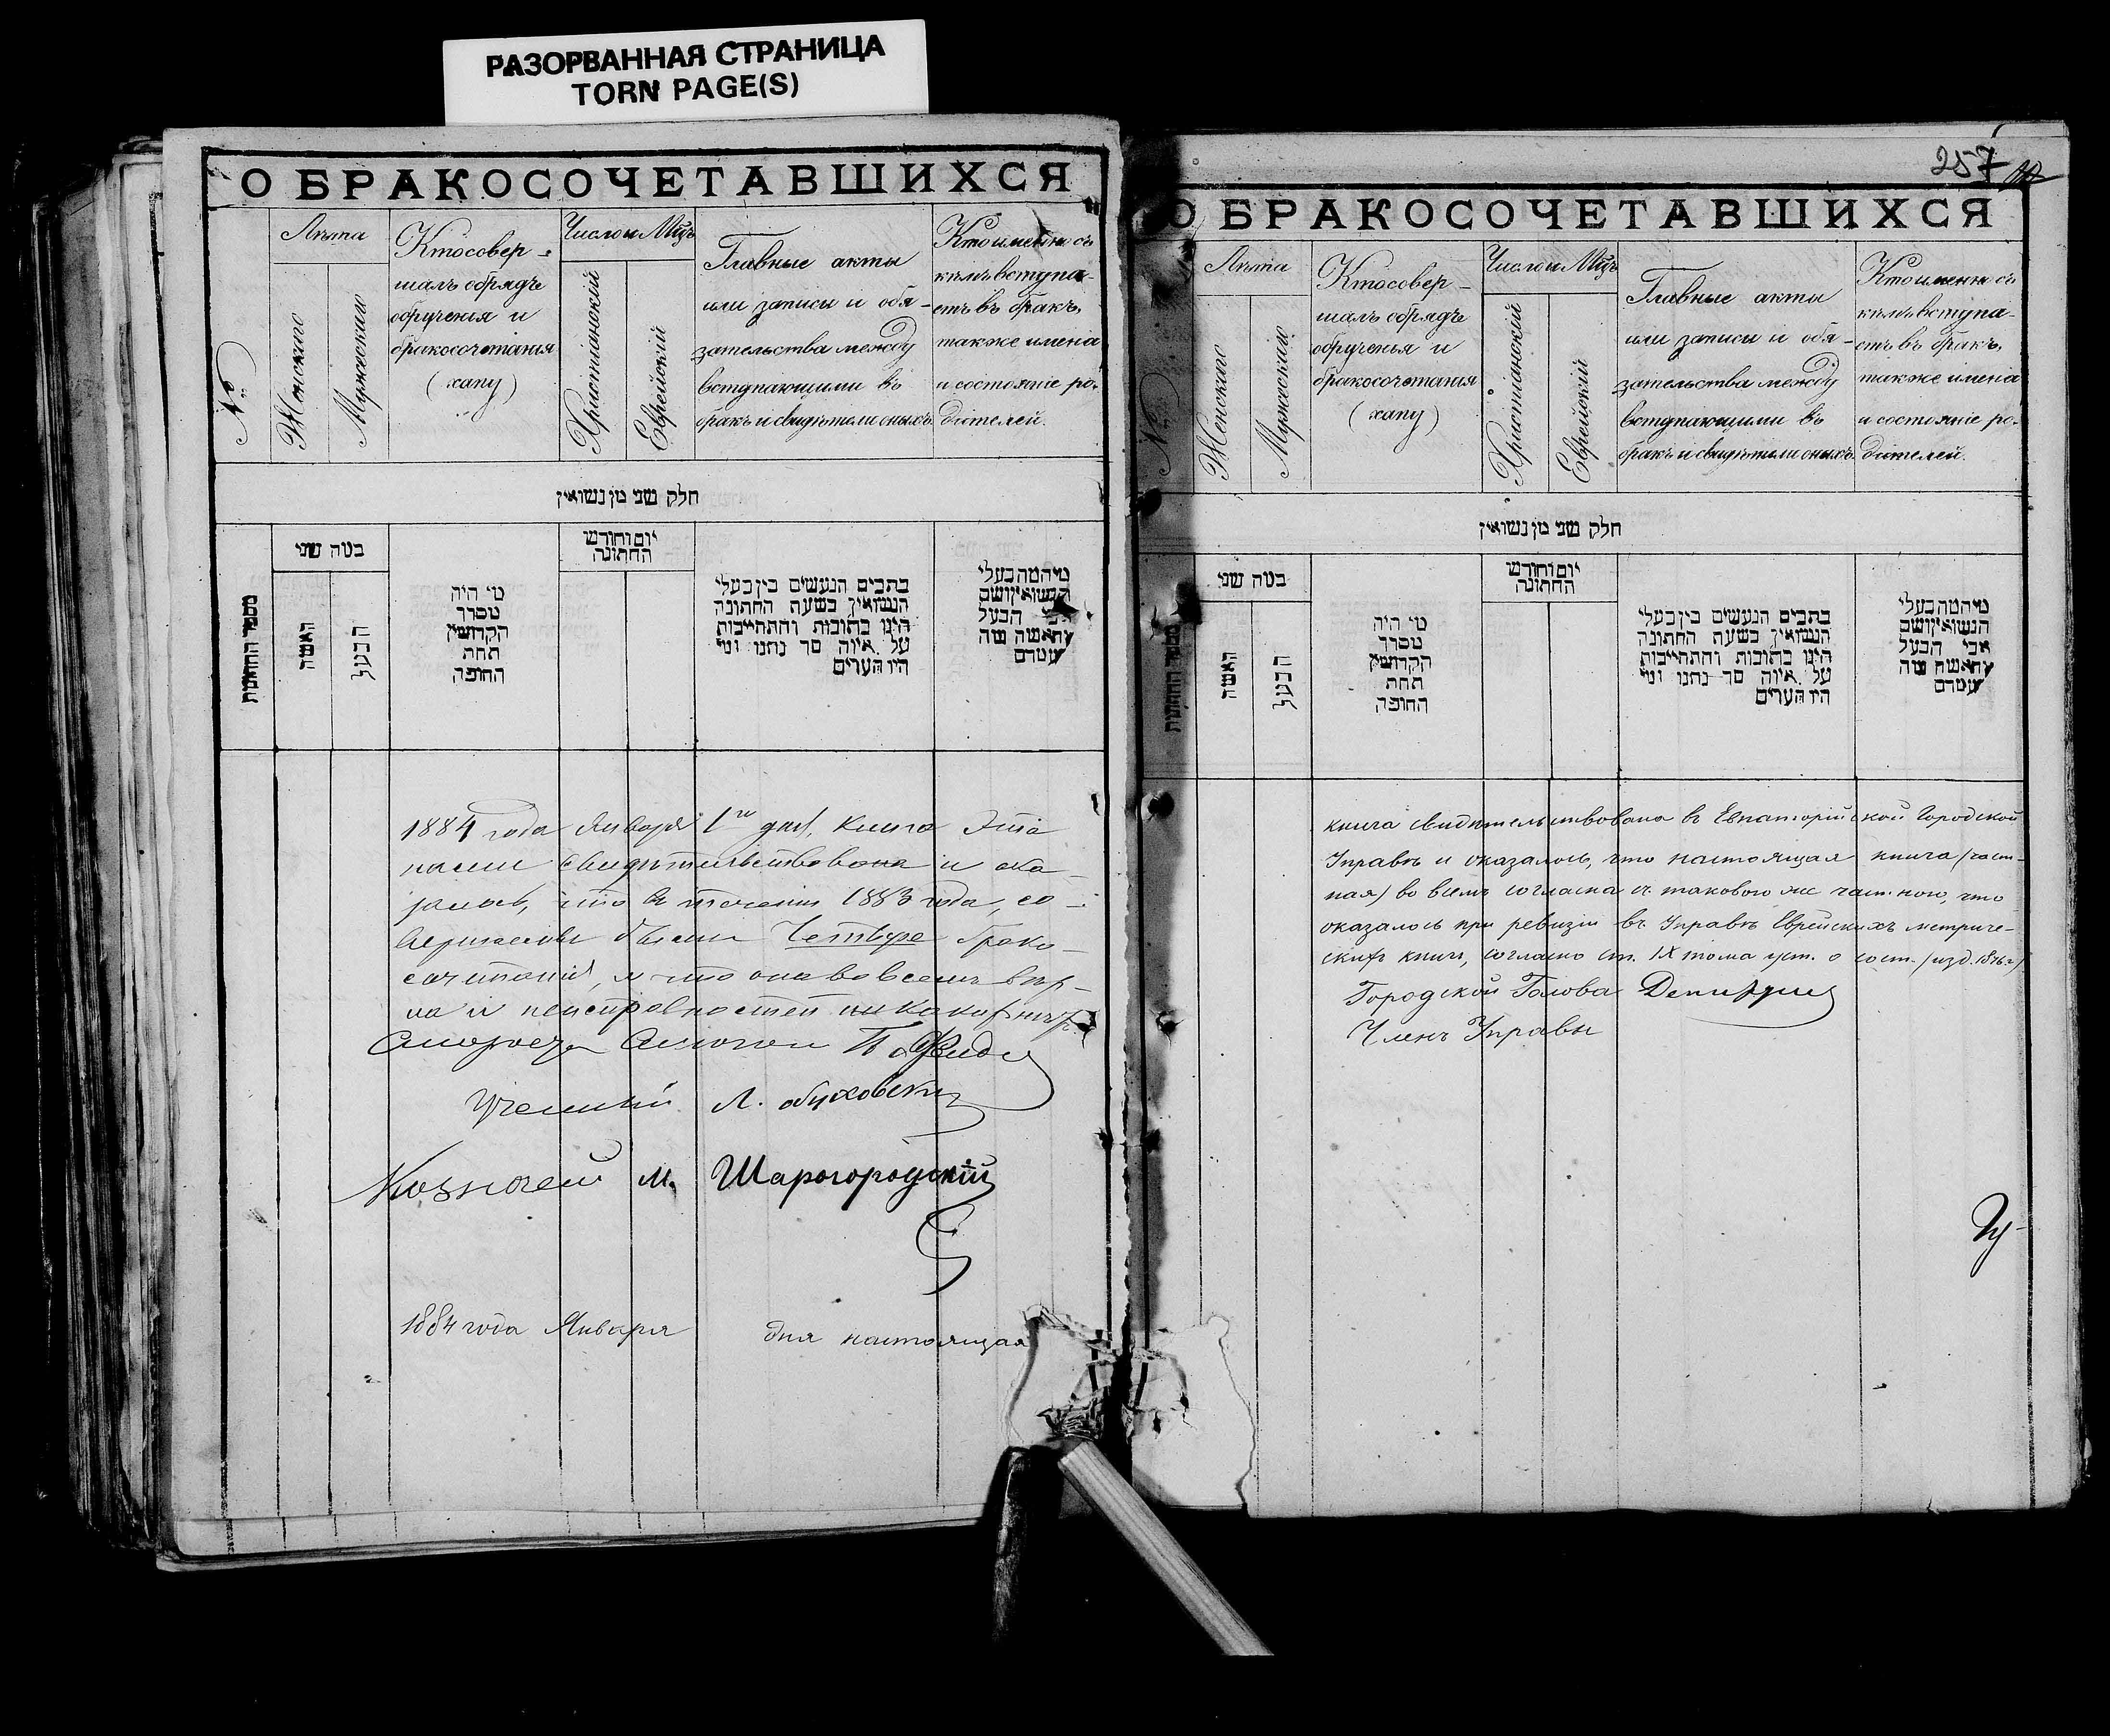 РАЗОРВАННАЯ СТРАНИЦА
TORN PAGE(S)
О БРАКОСОЧЕТАВШИХСЯ
№
Лѣта
Женскаго
Мужескаго
Кто совер-
шалъ обрядъ
обрученія и
бракосочетанія
(хапу)
Число и Мѣцъ
Христіанскій
Еврейскій
Главные акты
или записи и обя-
зательства между
вступающими въ
бракъ и свидѣтели оныхъ.
Кто именно съ
кѣмъ вступа-
етъ въ бракъ,
также имена
и состояніе ро-
дителей.
חלק שני מן נשואין
מספר החתונות
כמה שני
האשה
הבעל
מי היה
מסדר
הקדושין
תחת
החופה
יום וחודש
החתונה
כתבים הנעשים בין בעלי
הנשואין בשעת החתונה
היינו כתובות והתחייבות
על איזה סך נתנו ומי
היו העדים
מי המה בעלי
הנשואין ושם
אבי הבעל
והאשה ומה
מעמדם
1884 года Января 1го дня, книга эта
нами свидѣтельствована и ока-
залось, что въ теченіи 1883 года, со-
вершены были Четыре брако-
сочетанія, и что она во всемъ вѣр-
на и неисправностей никакихъ нѣтъ.
Староста
Ученый Л. Обуховскій
Казначей М. Шарогородскій
1884 года Января дня настоящая
257
О БРАКОСОЧЕТАВШИХСЯ
№
Лѣта
Женскаго
Мужескаго
Кто совер-
шалъ обрядъ
обрученья и
бракосочетания
(хапу)
Число и Мѣцъ
Христіанскій
Еврейскій
Главные акты
или записи и обя-
зательства между
вступающими въ
бракъ и свидѣтели оныхъ.
Кто именно съ
кѣмъ вступа-
етъ въ бракъ,
также имена
и состояніе ро-
дителей.
חלק שני מן נשואין
מספר החתונות
כמה שני
האשה
הבעל
מי היה
מסדר
הקדושין
תחת
החופה
יום וחודש
החתונה
כתבים הנעשים בין בעלי
הנשואין בשעת החתונה
היינו כתובות והתחייבות
על איזה סך נתנו ומי
היו העדים
מי המה בעלי
הנשואין ושם
אבי הבעל
והאשה ומה
מעמדם
книга свидѣтельствована въ Евпаторійской Городской
Управѣ и оказалось, что настоящая книга (част-
ная) во всемъ согласна съ таковою же частною, что
оказалось при ревизіи въ Управѣ Еврейскихъ метриче-
скихъ книгъ, согласно ст. IX тома уст. о сост. (изд. 1876 г.)
Городской Голова
Членъ Управы